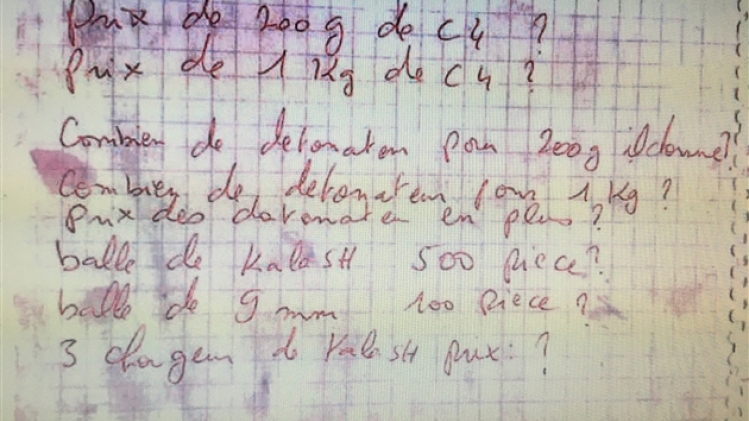 Prix de 200g de C4 ?
Prix de 1 Kg de C4 ?
Combien de detonateur pour 200g il donne?
Combien de detonateur pour 1 Kg ?
Prix des datonateur en plus ?
balle de KalaSH 500 piece?
balle de 9 mm 100 piece ?
3 chargeur de KalaSH prix: ?